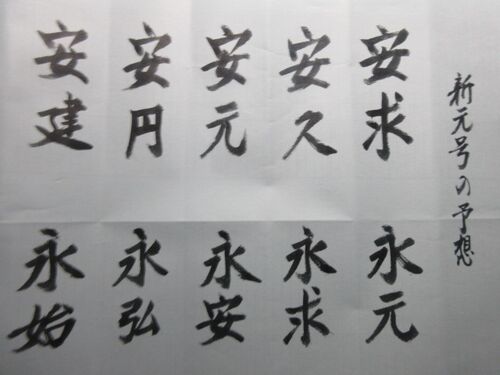 新元号の予想
安求
安久
安元
安円
安建
永元
永求
永安
永弘
永始